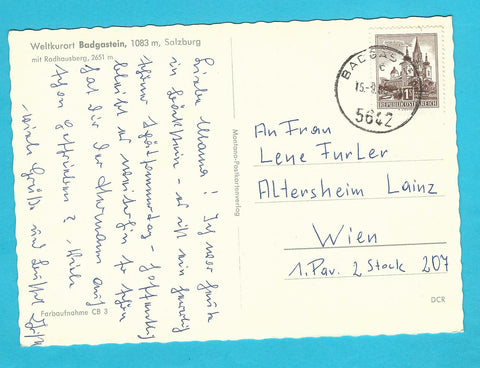 Weltkurort Badgastein, 1083 m, Salzburg
mit Radhausberg, 2651 m
Liebe Mama! Ich war heute
in Böckstein - es ist ein herrlich
schöner Spätsommertag - hoffentlich
bleibt es weiterhin so schön
Hat Dir der Hermann auch
schon geschrieben? Viele
Grüße und Bussi
Farbaufnahme CB 3
Montana-Postkartenverlag
BADGAS
15.-9.
5642
1S
REPUBLIK ÖSTERREICH
An Frau
Lene Furler
Altersheim Lainz
Wien
1. Pav. 2 Stock 207
DCR